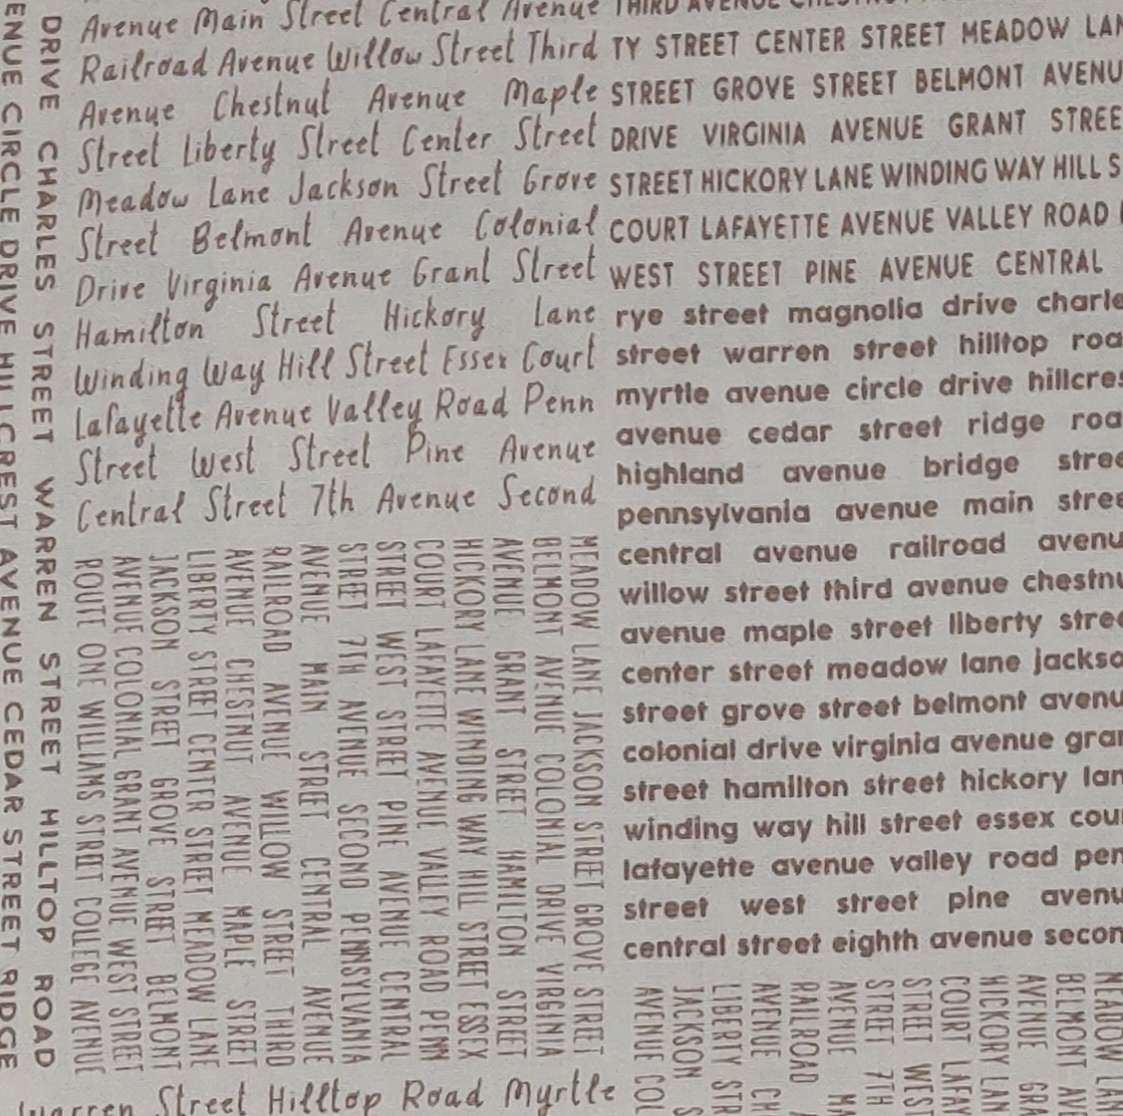 DRIVE CHARLES STREET WARREN STREET HILLTOP ROAD
CIRCLE DRIVE HILLCREST AVENUE CEDAR STREET RIDGE
Avenue Main Street Central Avenue
Railroad Avenue Willow Street Third
Avenue Chestnut Avenue Maple
Street Liberty Street Center Street
Meadow Lane Jackson Street Grove
Street Belmont Avenue Colonial
Drive Virginia Avenue Grant Street
Hamilton Street Hickory Lane
Winding Way Hill Street Essex Court
Lafayette Avenue Valley Road Penn
Street West Street Pine Avenue
Central Street 7th Avenue Second
THIRD AVENUE
STREET CENTER STREET MEADOW
STREET GROVE STREET BELMONT
DRIVE VIRGINIA AVENUE GRANT
STREET HICKORY LANE WINDING WAY HILL
COURT LAFAYETTE AVENUE VALLEY ROAD
WEST STREET PINE AVENUE CENTRAL
rye street magnolia drive
street warren street hilltop
myrtle avenue circle drive
avenue cedar street ridge
highland avenue bridge
pennsylvania avenue main
central avenue railroad
willow street third avenue
avenue maple street liberty
center street meadow lane
street grove street belmont
colonial drive virginia avenue
street hamilton street hickory
winding way hill street essex
lafayette avenue valley road
street west street pine
central street eighth avenue
MEADOW LANE JACKSON STREET GROVE STREET
BELMONT AVENUE COLONIAL DRIVE VIRGINIA
AVENUE GRANT STREET HAMILTON STREET
HICKORY LANE WINDING WAY HILL STREET ESSEX
COURT LAFAYETTE AVENUE VALLEY ROAD PENN
STREET WEST STREET PINE AVENUE CENTRAL
STREET 7TH AVENUE SECOND PENNSYLVANIA
AVENUE MAIN STREET CENTRAL AVENUE
RAILROAD AVENUE WILLOW STREET THIRD
AVENUE CHESTNUT AVENUE MAPLE STREET
LIBERTY STREET CENTER STREET MEADOW LANE
JACKSON STREET GROVE STREET BELMONT
AVENUE COLONIAL GRANT AVENUE WEST STREET
ROUTE ONE WILLIAMS STREET COLLEGE AVENUE
BELMONT
AVENUE
HICKORY
COURT
STREET
STREET 7TH
AVENUE
RAILROAD
AVENUE
LIBERTY
JACKSON
AVENUE
Street Hilltop Road Myrtle